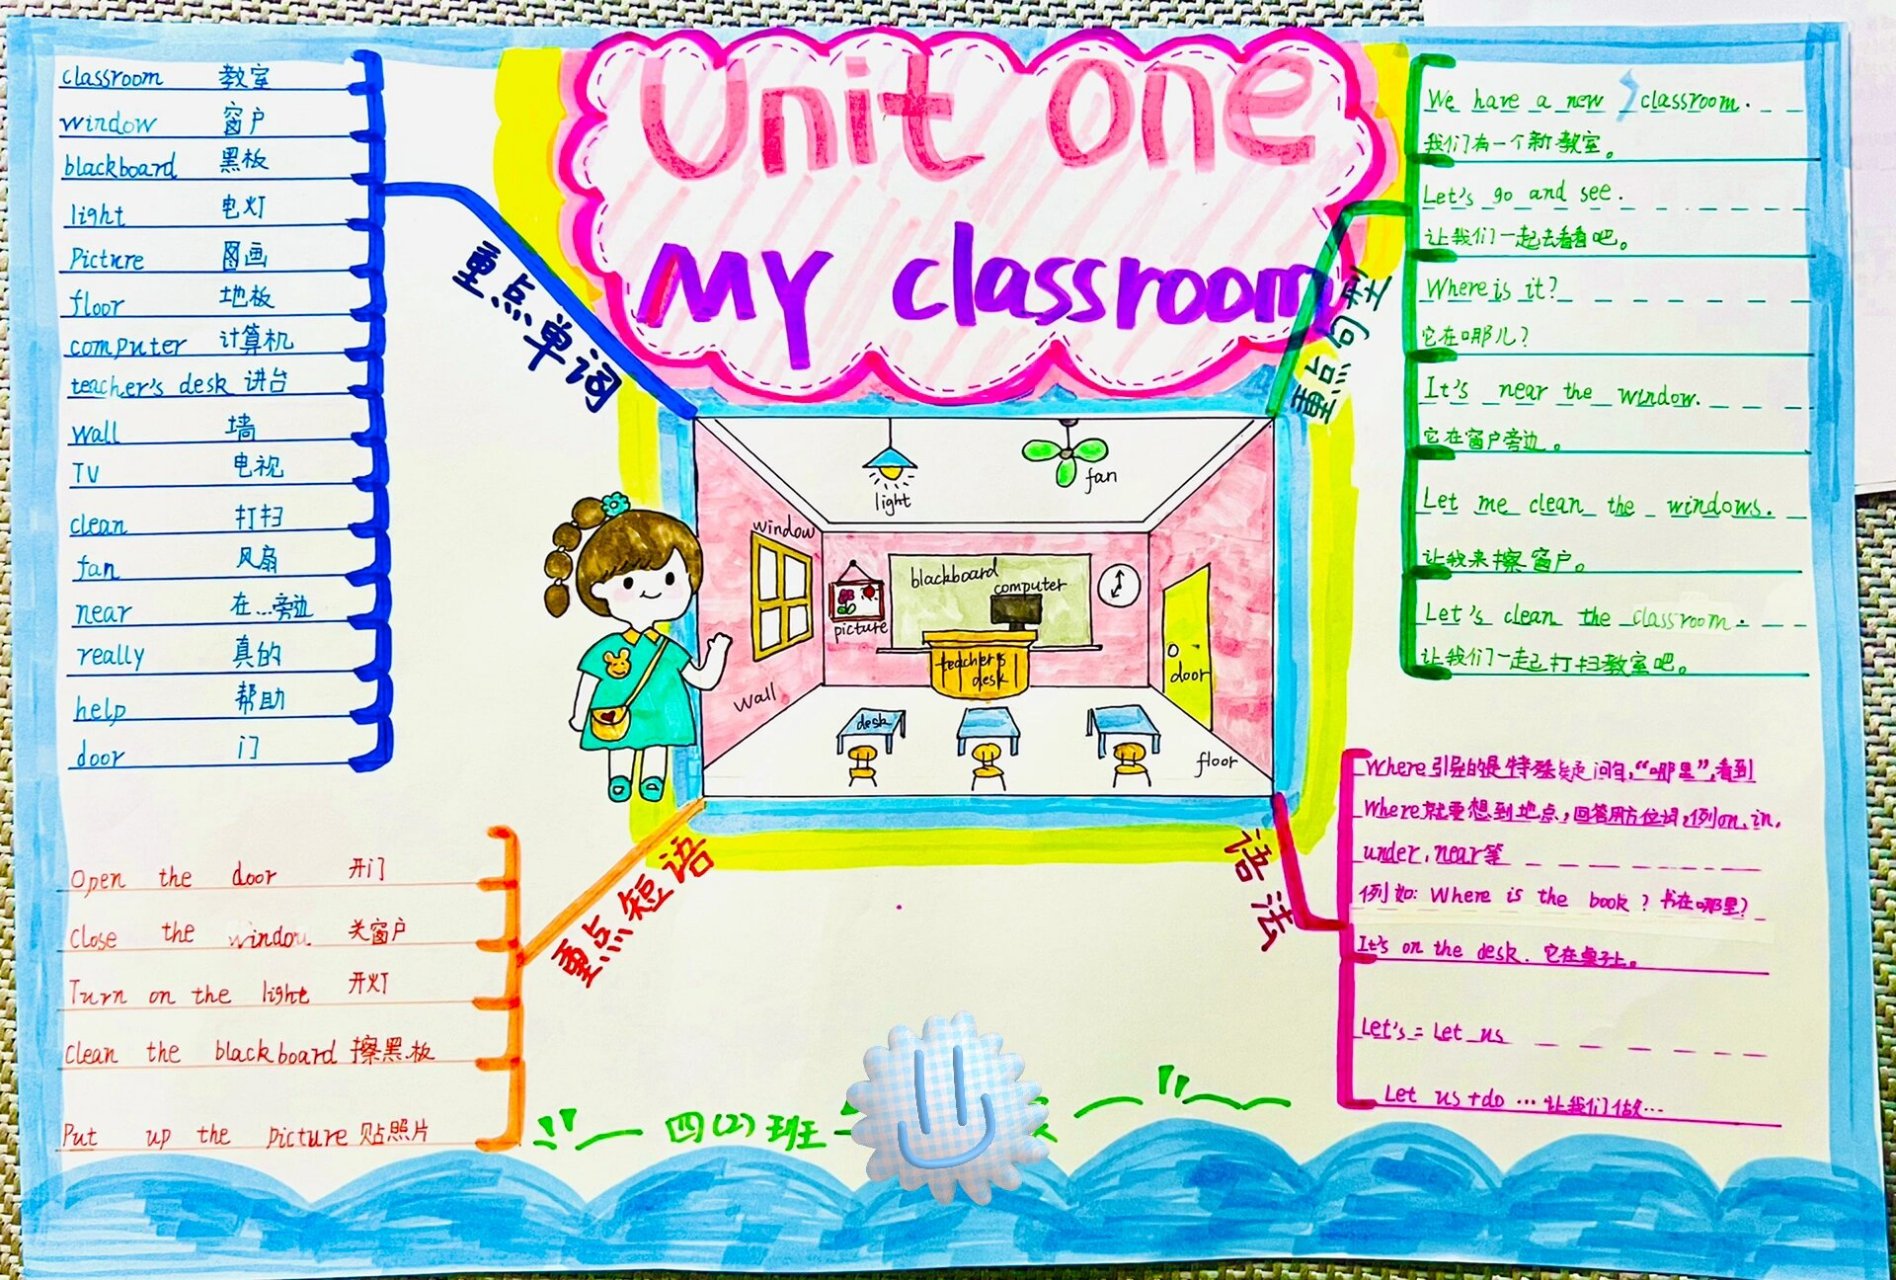 Unit one
My classroom
重点单词
classroom 教室
window 窗户
blackboard 黑板
light 电灯
Picture 图画
floor 地板
computer 计算机
teacher's desk 讲台
wall 墙
TV 电视
clean 打扫
fan 风扇
near 在...旁边
really 真的
help 帮助
door 门
重点短语
Open the door 开门
Close the window 关窗户
Turn on the light 开灯
Clean the blackboard 擦黑板
Put up the picture 贴照片
重点句型
We have a new classroom.
我们有一个新教室。
Let's go and see.
让我们一起去看看吧。
Where is it?
它在哪儿?
It's near the window.
它在窗户旁边。
Let me clean the windows.
让我来擦窗户。
Let's clean the classroom.
让我们一起打扫教室吧。
语法
Where引导的是特殊疑问句,“哪里”,看到
Where就要想到地点,回答用方位词,例on, in,
under, near等
例如: Where is the book? 书在哪里?
It's on the desk. 它在桌子上。
Let's = Let us
Let us+do ...让我们做...
light
fan
window
blackboard
computer
picture
teacher's
desk
door
wall
desk
floor
四(2)班